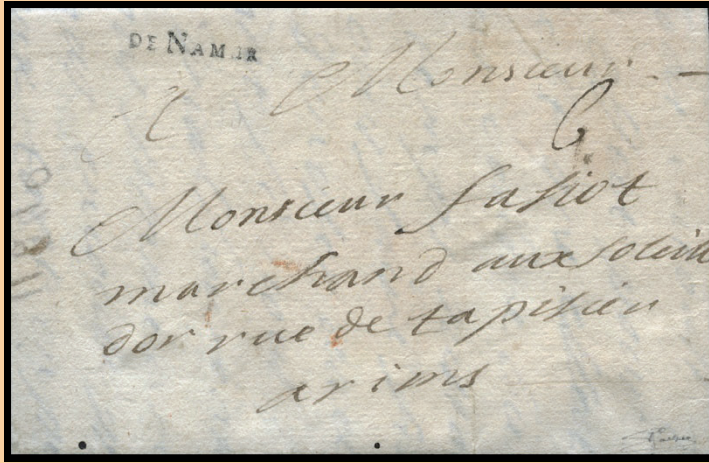 DE NAMUR
A Monsieur
6
Monsieur
marchand aux soleill
dor rue de tapisien
arims